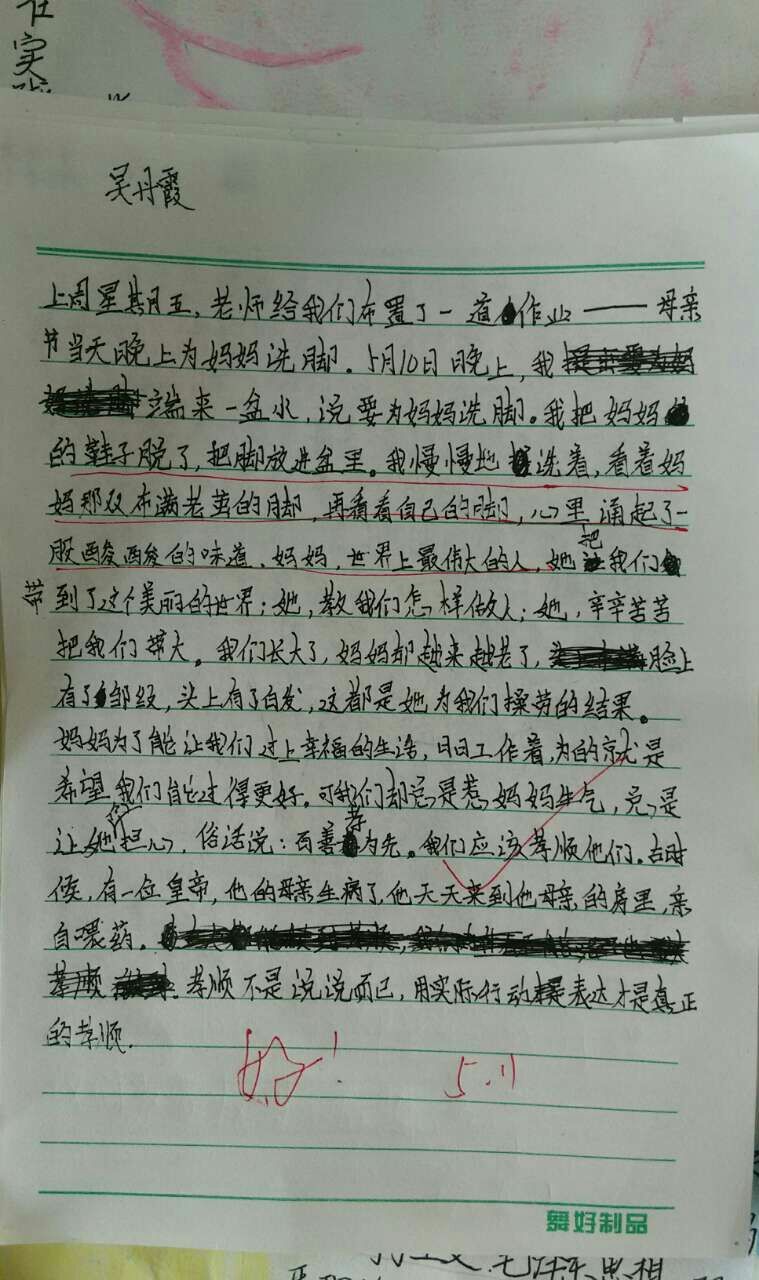 在
实
吴丹霞
上周星期五，老师给我们布置了一道作业——母亲
节当天晚上为妈妈洗脚。5月10日晚上，我
端来一盆水，说要为妈妈洗脚。我把妈妈
的鞋子脱了，把脚放进盆里。我慢慢地洗着，看着妈
妈那双布满老茧的脚，再看看自己的脚，心里涌起了一
股酸酸的味道。妈妈，世界上最伟大的人，她把我们
带到了这个美丽的世界；她，教我们怎样做人；她，辛辛苦苦
把我们带大。我们长大了，妈妈却越来越老了，脸上
有了皱纹，头上有了白发，这都是她为我们操劳的结果。
妈妈为了能让我们过上幸福的生活，日日工作着，为的就是
希望我们能过得更好。可我们却总是惹妈妈生气，总是
让她担心。俗话说：百善孝为先。我们应该孝顺他们。古时
候，有一位皇帝，他的母亲生病了，他天天来到他母亲的房里，亲
自喂药。
孝顺不是说说而已，用实际行动来表达才是真正
的孝顺.
好！ 5.11
舞好制品
毛泽东思想